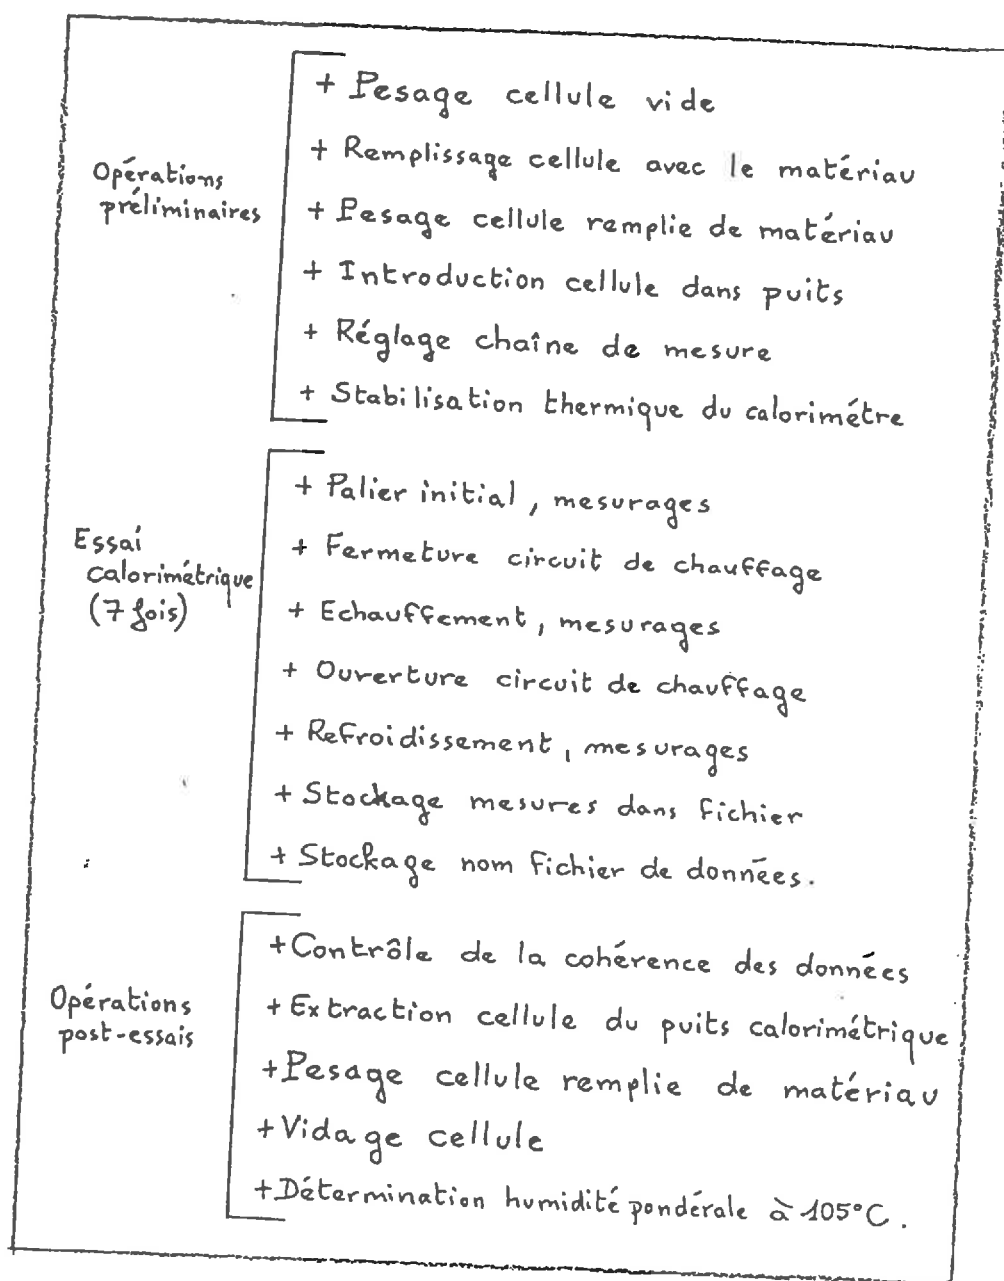 Opérations
préliminaires
+ Pesage cellule vide
+ Remplissage cellule avec le matériau
+ Pesage cellule remplie de matériau
+ Introduction cellule dans puits
+ Réglage chaîne de mesure
+ Stabilisation thermique du calorimétre
Essai
calorimétrique
(7 fois)
+ Palier initial, mesurages
+ Fermeture circuit de chauffage
+ Echauffement, mesurages
+ Ouverture circuit de chauffage
+ Refroidissement, mesurages
+ Stockage mesures dans fichier
+ Stockage nom fichier de données.
Opérations
post-essais
+ Contrôle de la cohérence des données
+ Extraction cellule du puits calorimétrique
+ Pesage cellule remplie de matériau
+ Vidage cellule
+ Détermination humidité pondérale à 105°C.